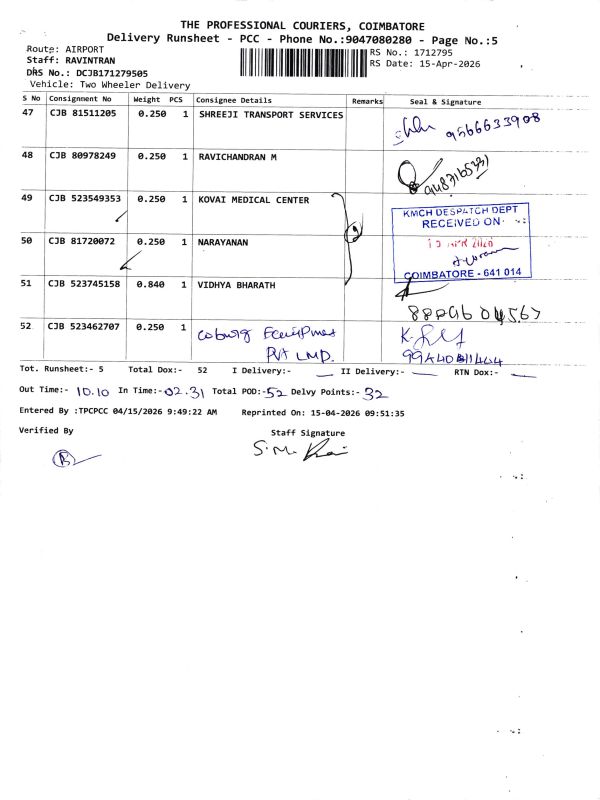 THE PROFESSIONAL COURIERS, COIMBATORE
Delivery Runsheet - PCC - Phone No.:9047080280 - Page No.:5
Route: AIRPORT
RS No.: 1712795
Staff: RAVINTRAN
RS Date: 15-Apr-2026
DRS No.: DCJB171279505
Vehicle: Two Wheeler Delivery
S No Consignment No Weight PCS Consignee Details Remarks Seal & Signature
47 CJB 81511205 0.250 1 SHREEJI TRANSPORT SERVICES 9566633908
48 CJB 80978249 0.250 1 RAVICHANDRAN M
49 CJB 523549353 0.250 1 KOVAI MEDICAL CENTER
KMCH DESPATCH DEPT
RECEIVED ON
50 CJB 81720072 0.250 1 NARAYANAN
COIMBATORE - 641 014
51 CJB 523745158 0.840 1 VIDHYA BHARATH
52 CJB 523462707 0.250 1
PVT LMD.
Tot. Runsheet:- 5 Total Dox:- 52 I Delivery:- II Delivery:- RTN Dox:-
Out Time:- 10.10 In Time:- 02.31 Total POD:- 52 Delvy Points:- 32
Entered By :TPCPCC 04/15/2026 9:49:22 AM Reprinted On: 15-04-2026 09:51:35
Verified By Staff Signature